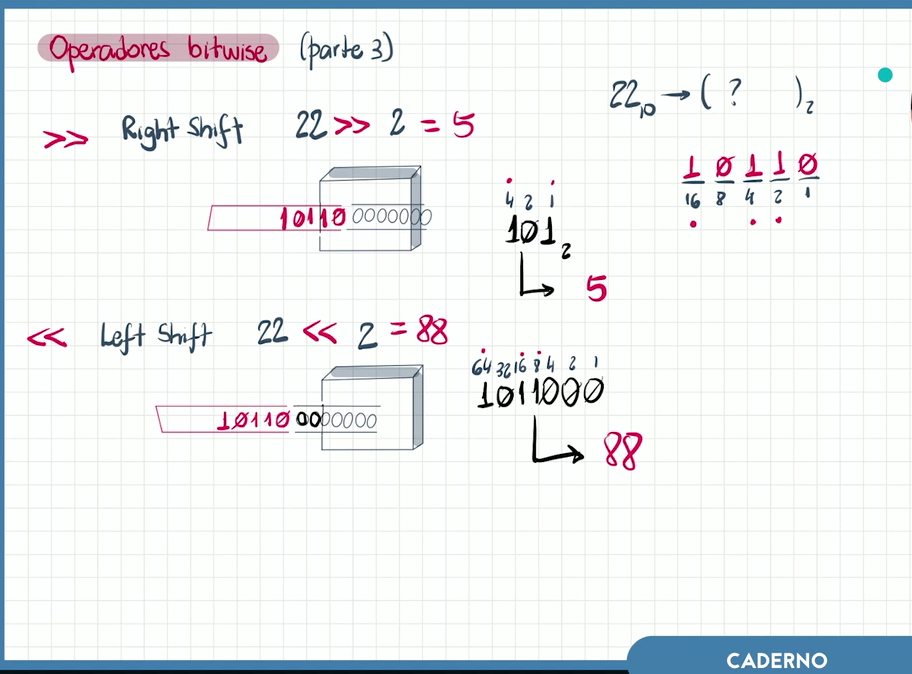 Operadores bitwise (parte 3)
22₁₀ → ( ? )₂
1 0 1 1 0
16 8 4 2 1
>> Right Shift 22 >> 2 = 5
10110 0000000
4 2 1
101₂
5
<< Left Shift 22 << 2 = 88
10110 00 00000
64 32 16 8 4 2 1
1011000
88
CADERNO